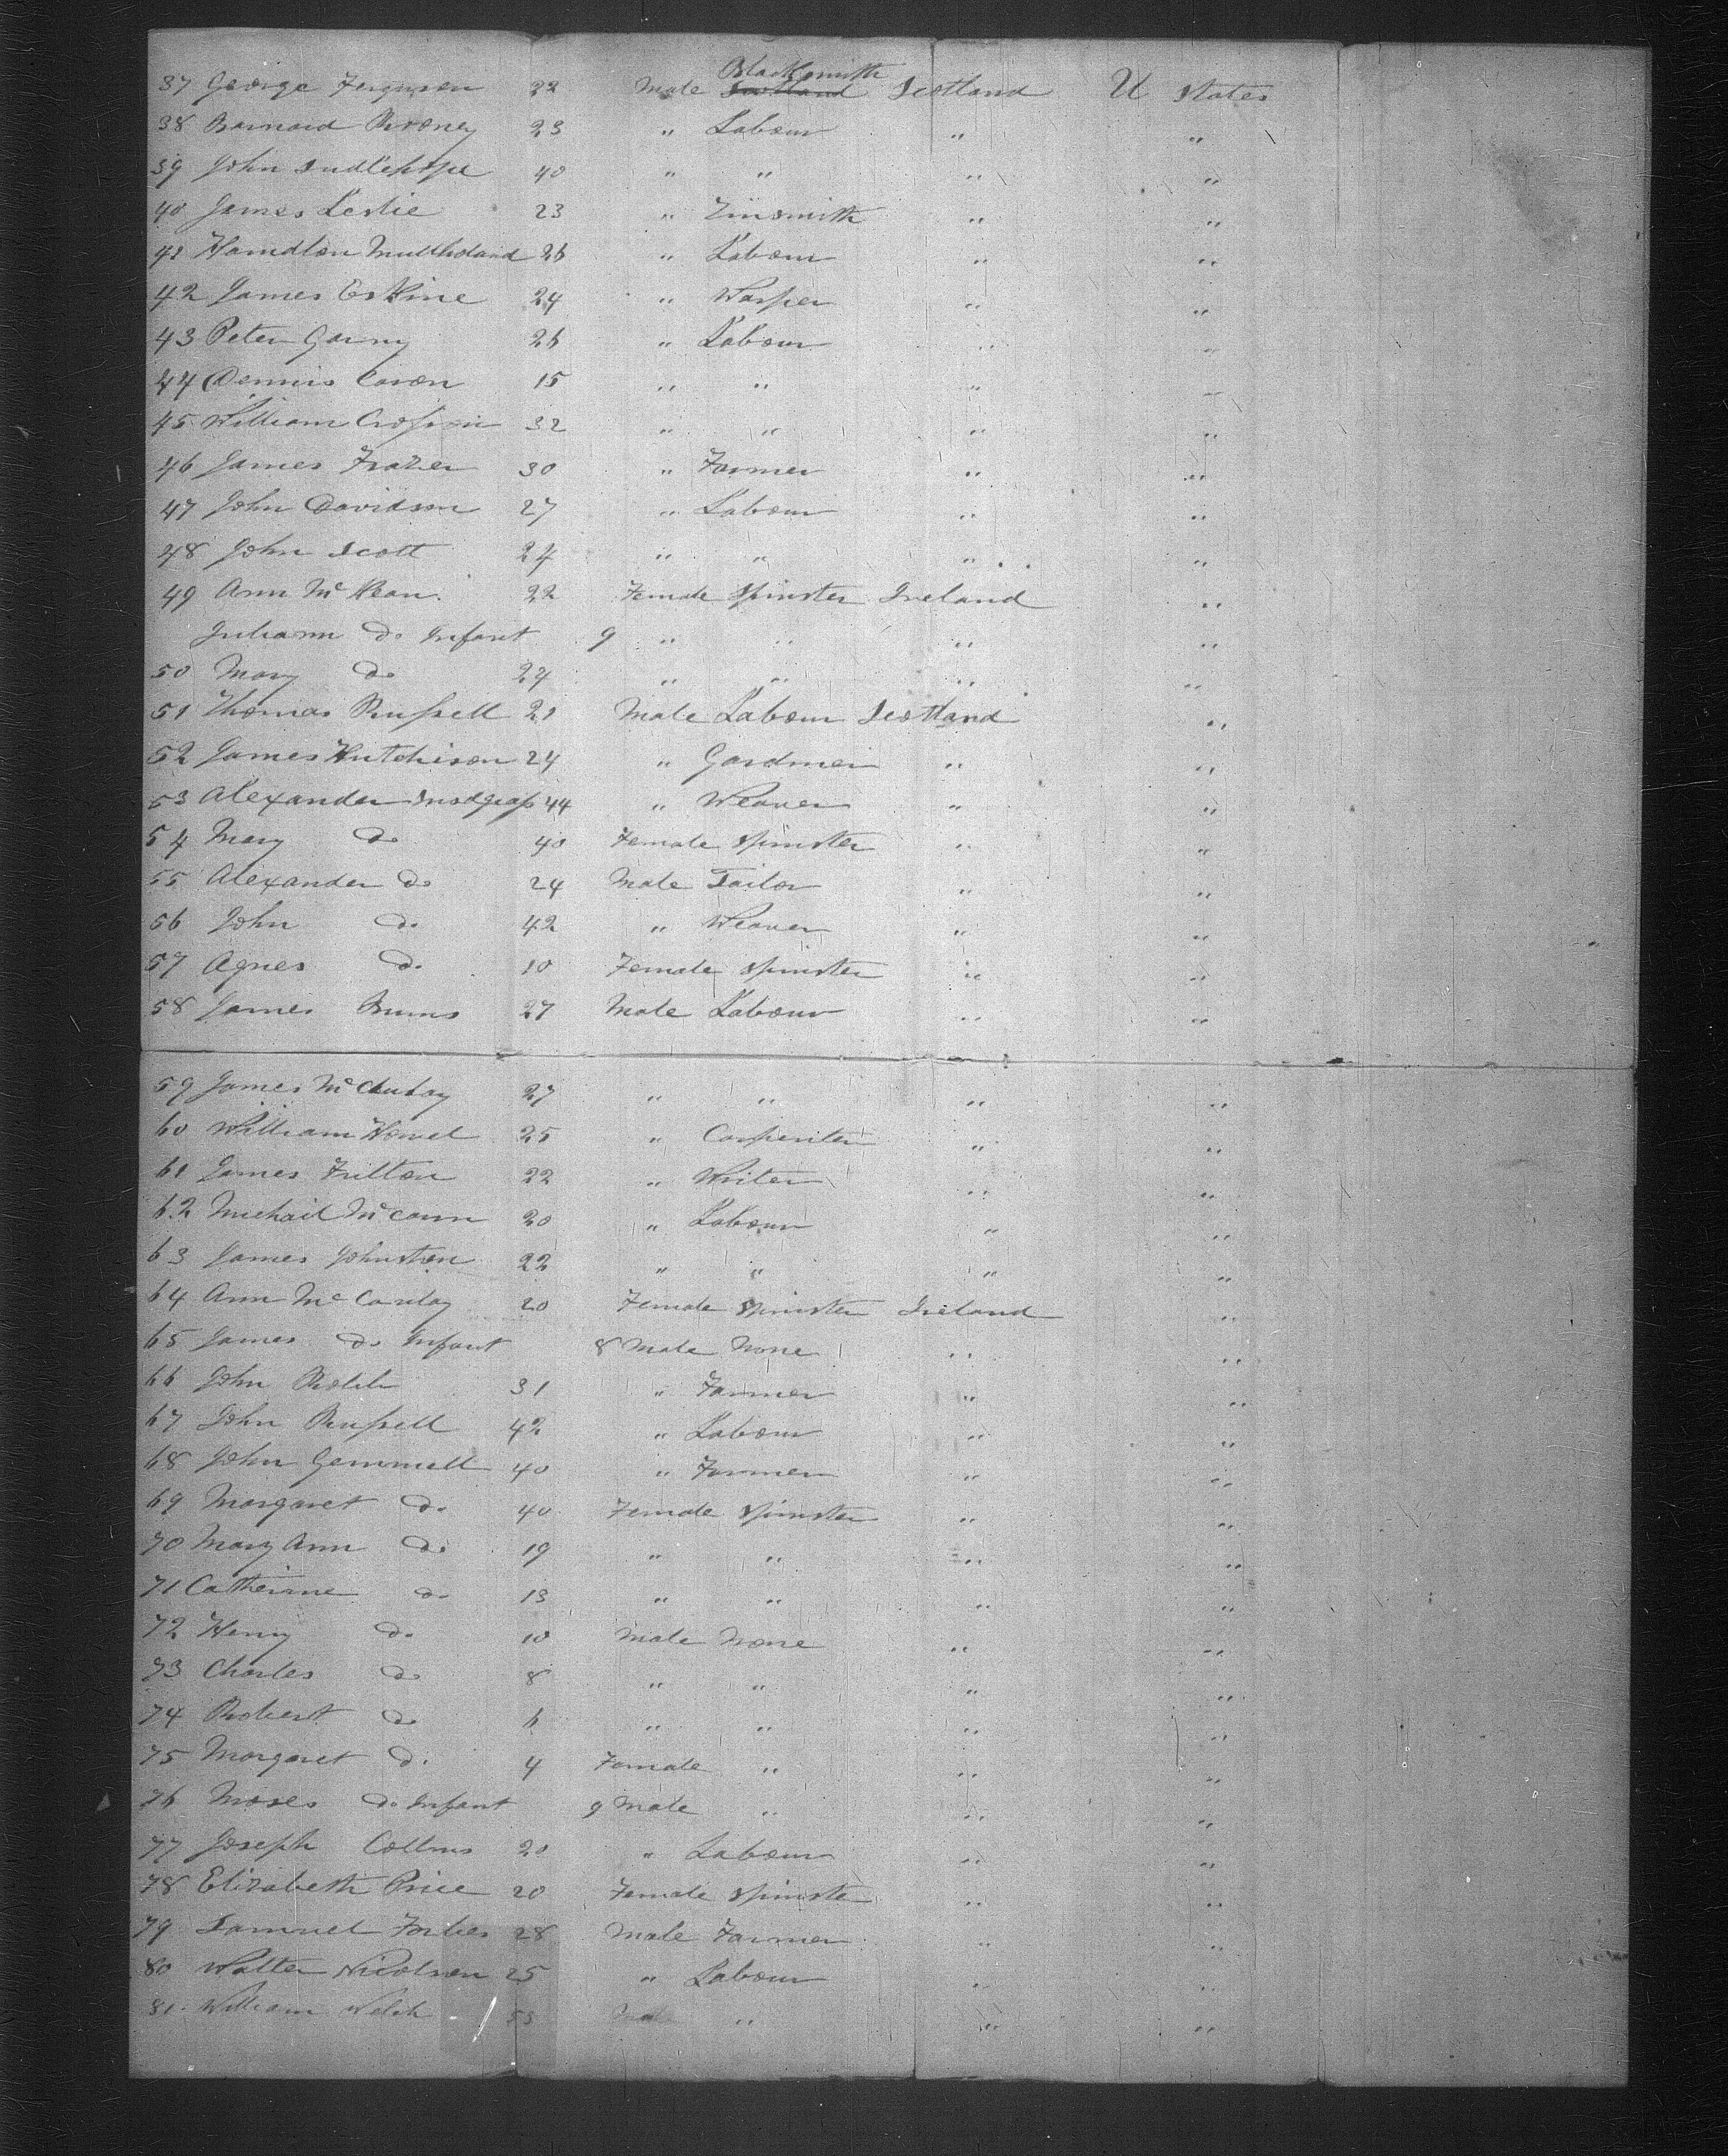 Blacksmith
37 George Ferguson 22 Male Scotland Scotland U States
38 Barnard Rooney 23 " Labour " "
39 John 40 " " " "
40 James Leslie 23 " Tinsmith " "
41 Hamilton Mullholand 26 " Labour " "
42 James Erskine 24 " Warper " "
43 Peter 26 " Labour " "
44 Dennis 15 " " " "
45 William 32 " " " "
46 James Frazer 30 " Farmer " "
47 John Davidson 27 " Labour " "
48 John Scott 24 " " " "
49 Ann McKean 22 Female Spinster Ireland "
Juliann Do Infant 9 " " " "
50 Mary Do 24 " " " "
51 Thomas Russell 21 Male Labour Scotland "
52 James Hutchison 24 " Gardner " "
53 Alexander Snodgrass 44 " Weaver " "
54 Mary Do 40 Female Spinster " "
55 Alexander Do 24 Male Tailor " "
56 John Do 42 " Weaver " "
57 Agnes Do 10 Female Spinster " "
58 James Burns 27 Male Labour " "
59 James McAulay 27 " " " "
60 William 25 " Carpenter " "
61 James 22 " Writer " "
62 Michail McCann 20 " Labour " "
63 James Johnston 22 " " " "
64 Ann McCaulay 20 Female Spinster Ireland "
65 James Do Infant 8 Male None " "
66 John 31 " Farmer " "
67 John Russell 42 " Labour " "
68 John Gemmell 40 " Farmer " "
69 Margaret Do 40 Female Spinster " "
70 Mary Ann Do 19 " " " "
71 Catherine Do 13 " " " "
72 Henry Do 10 Male None " "
73 Charles Do 8 " " " "
74 Robert Do 6 " " " "
75 Margaret Do 4 Female " " "
76 Moses Do Infant 9 Male " " "
77 Joseph Collins 20 " Labour " "
78 Elizabeth Price 20 Female Spinster " "
79 Samuel Forbes 28 Male Farmer " "
80 Walter Nicolson 25 " Labour " "
81 William Welch 53 Male " " "